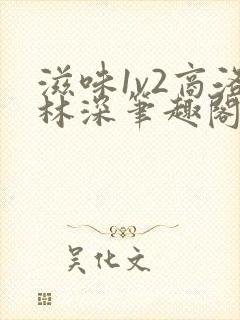 滋味1v2高洛
林深笔趣阁
吴化文